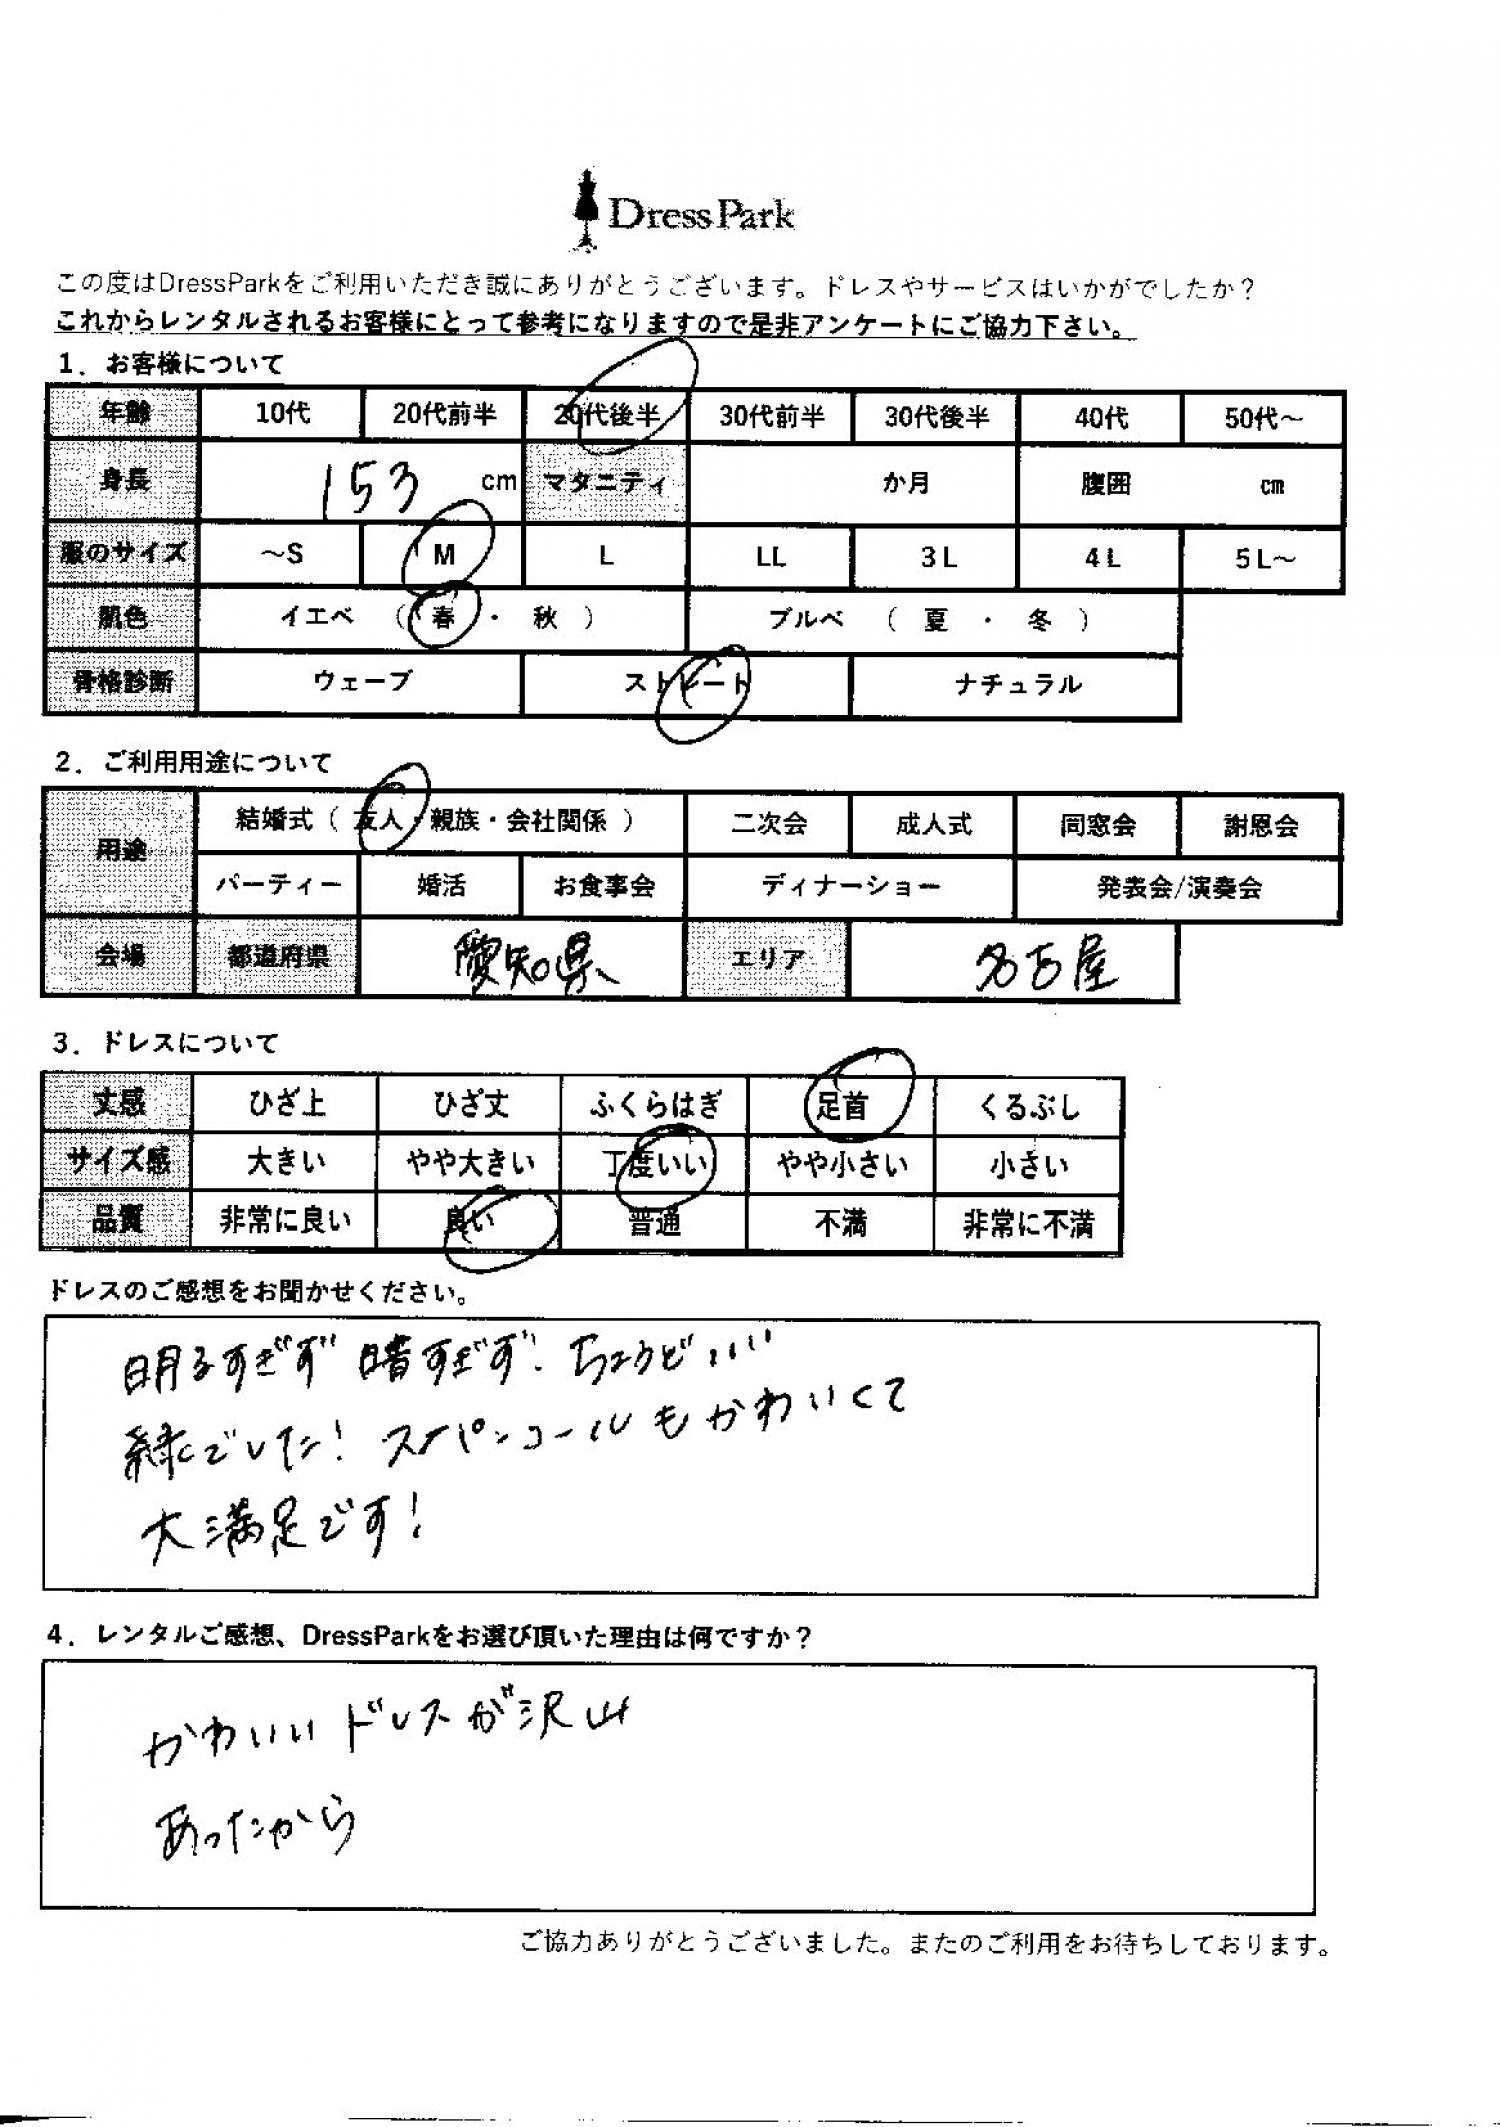 DressPark
この度はDressParkをご利用いただき誠にありがとうございます。ドレスやサービスはいかがでしたか？
これからレンタルされるお客様にとって参考になりますので是非アンケートにご協力下さい。
1．お客様について
年齢 10代 20代前半 20代後半 30代前半 30代後半 40代 50代～
身長 153 cm マタニティ か月 腹囲 cm
服のサイズ ～S M L LL 3L 4L 5L～
肌色 イエベ （ 春 ・ 秋 ） ブルベ （ 夏 ・ 冬 ）
骨格診断 ウェーブ ストレート ナチュラル
2．ご利用用途について
用途 結婚式（ 友人・親族・会社関係 ） 二次会 成人式 同窓会 謝恩会
パーティー 婚活 お食事会 ディナーショー 発表会/演奏会
会場 都道府県 愛知県 エリア 名古屋
3．ドレスについて
丈感 ひざ上 ひざ丈 ふくらはぎ 足首 くるぶし
サイズ感 大きい やや大きい 丁度いい やや小さい 小さい
品質 非常に良い 良い 普通 不満 非常に不満
ドレスのご感想をお聞かせください。
明るすぎず 暗すぎず、ちょうどいい
緑でした！スパンコールもかわいくて
大満足です！
4．レンタルご感想、DressParkをお選び頂いた理由は何ですか？
かわいいドレスが沢山
あったから
ご協力ありがとうございました。またのご利用をお待ちしております。